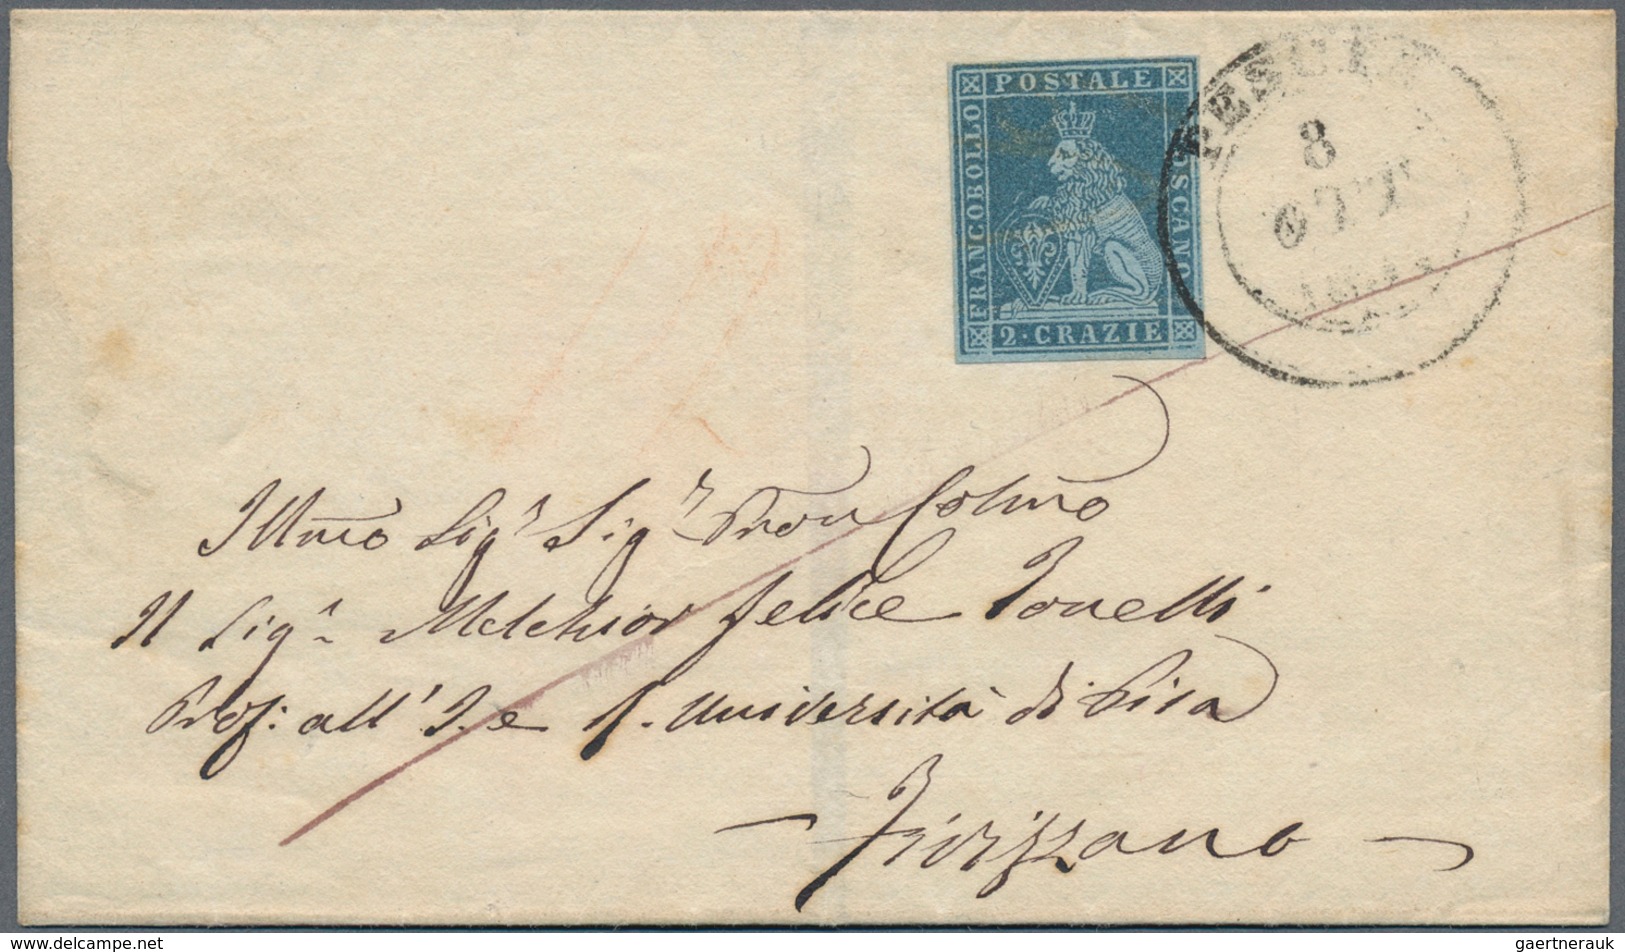 POSTALE
FRANCOBOLLO
TOSCANO
2·CRAZIE
PESCIA
8
OTT
Illmo Sig.r Sig.r Pron Colmo
Il Sig.r Melchior Felice Tonelli
Prof: all' I. e R. Università di Pisa
— Fivizzano —
www.delcampe.net
gaertnerauk